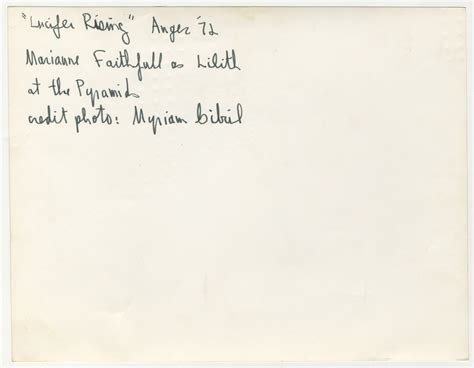 "Lucifer Rising" Anger '72
Marianne Faithfull as Lilith
at the Pyramids
credit photo: Myriam Gibril